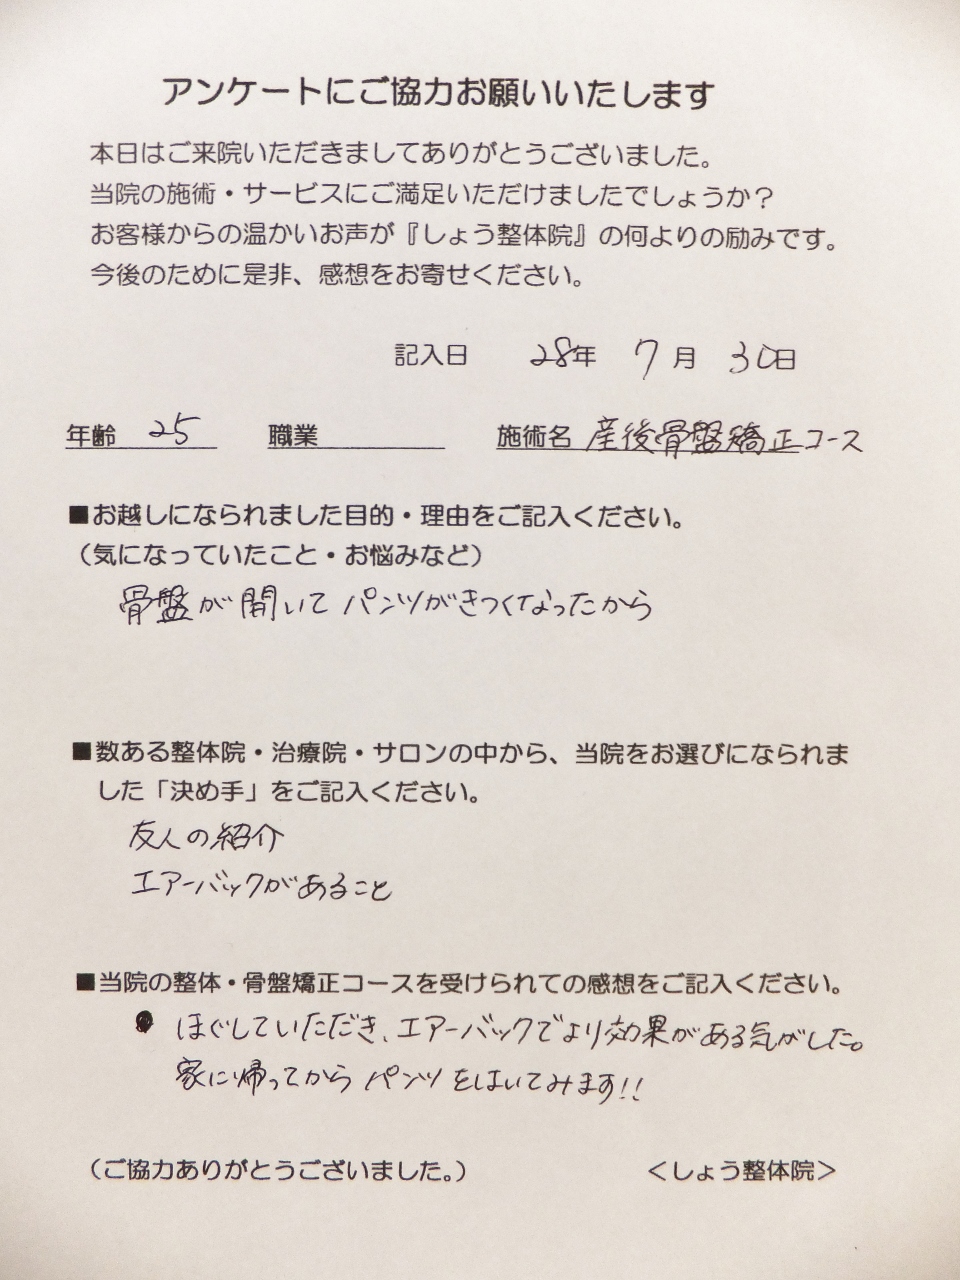 アンケートにご協力お願いいたします
本日はご来院いただきましてありがとうございました。
当院の施術・サービスにご満足いただけましたでしょうか？
お客様からの温かいお声が『しょう整体院』の何よりの励みです。
今後のために是非、感想をお寄せください。
記入日 28年 7月 30日
年齢 25 職業 施術名 産後骨盤矯正コース
■お越しになられました目的・理由をご記入ください。
（気になっていたこと・お悩みなど）
骨盤が開いて パンツがきつくなったから
■数ある整体院・治療院・サロンの中から、当院をお選びになられま
した「決め手」をご記入ください。
友人の紹介
エアーバックがあること
■当院の整体・骨盤矯正コースを受けられての感想をご記入ください。
ほぐしていただき、エアーバックでより効果がある気がした。
家に帰ってから パンツをはいてみます!!
（ご協力ありがとうございました。） ＜しょう整体院＞